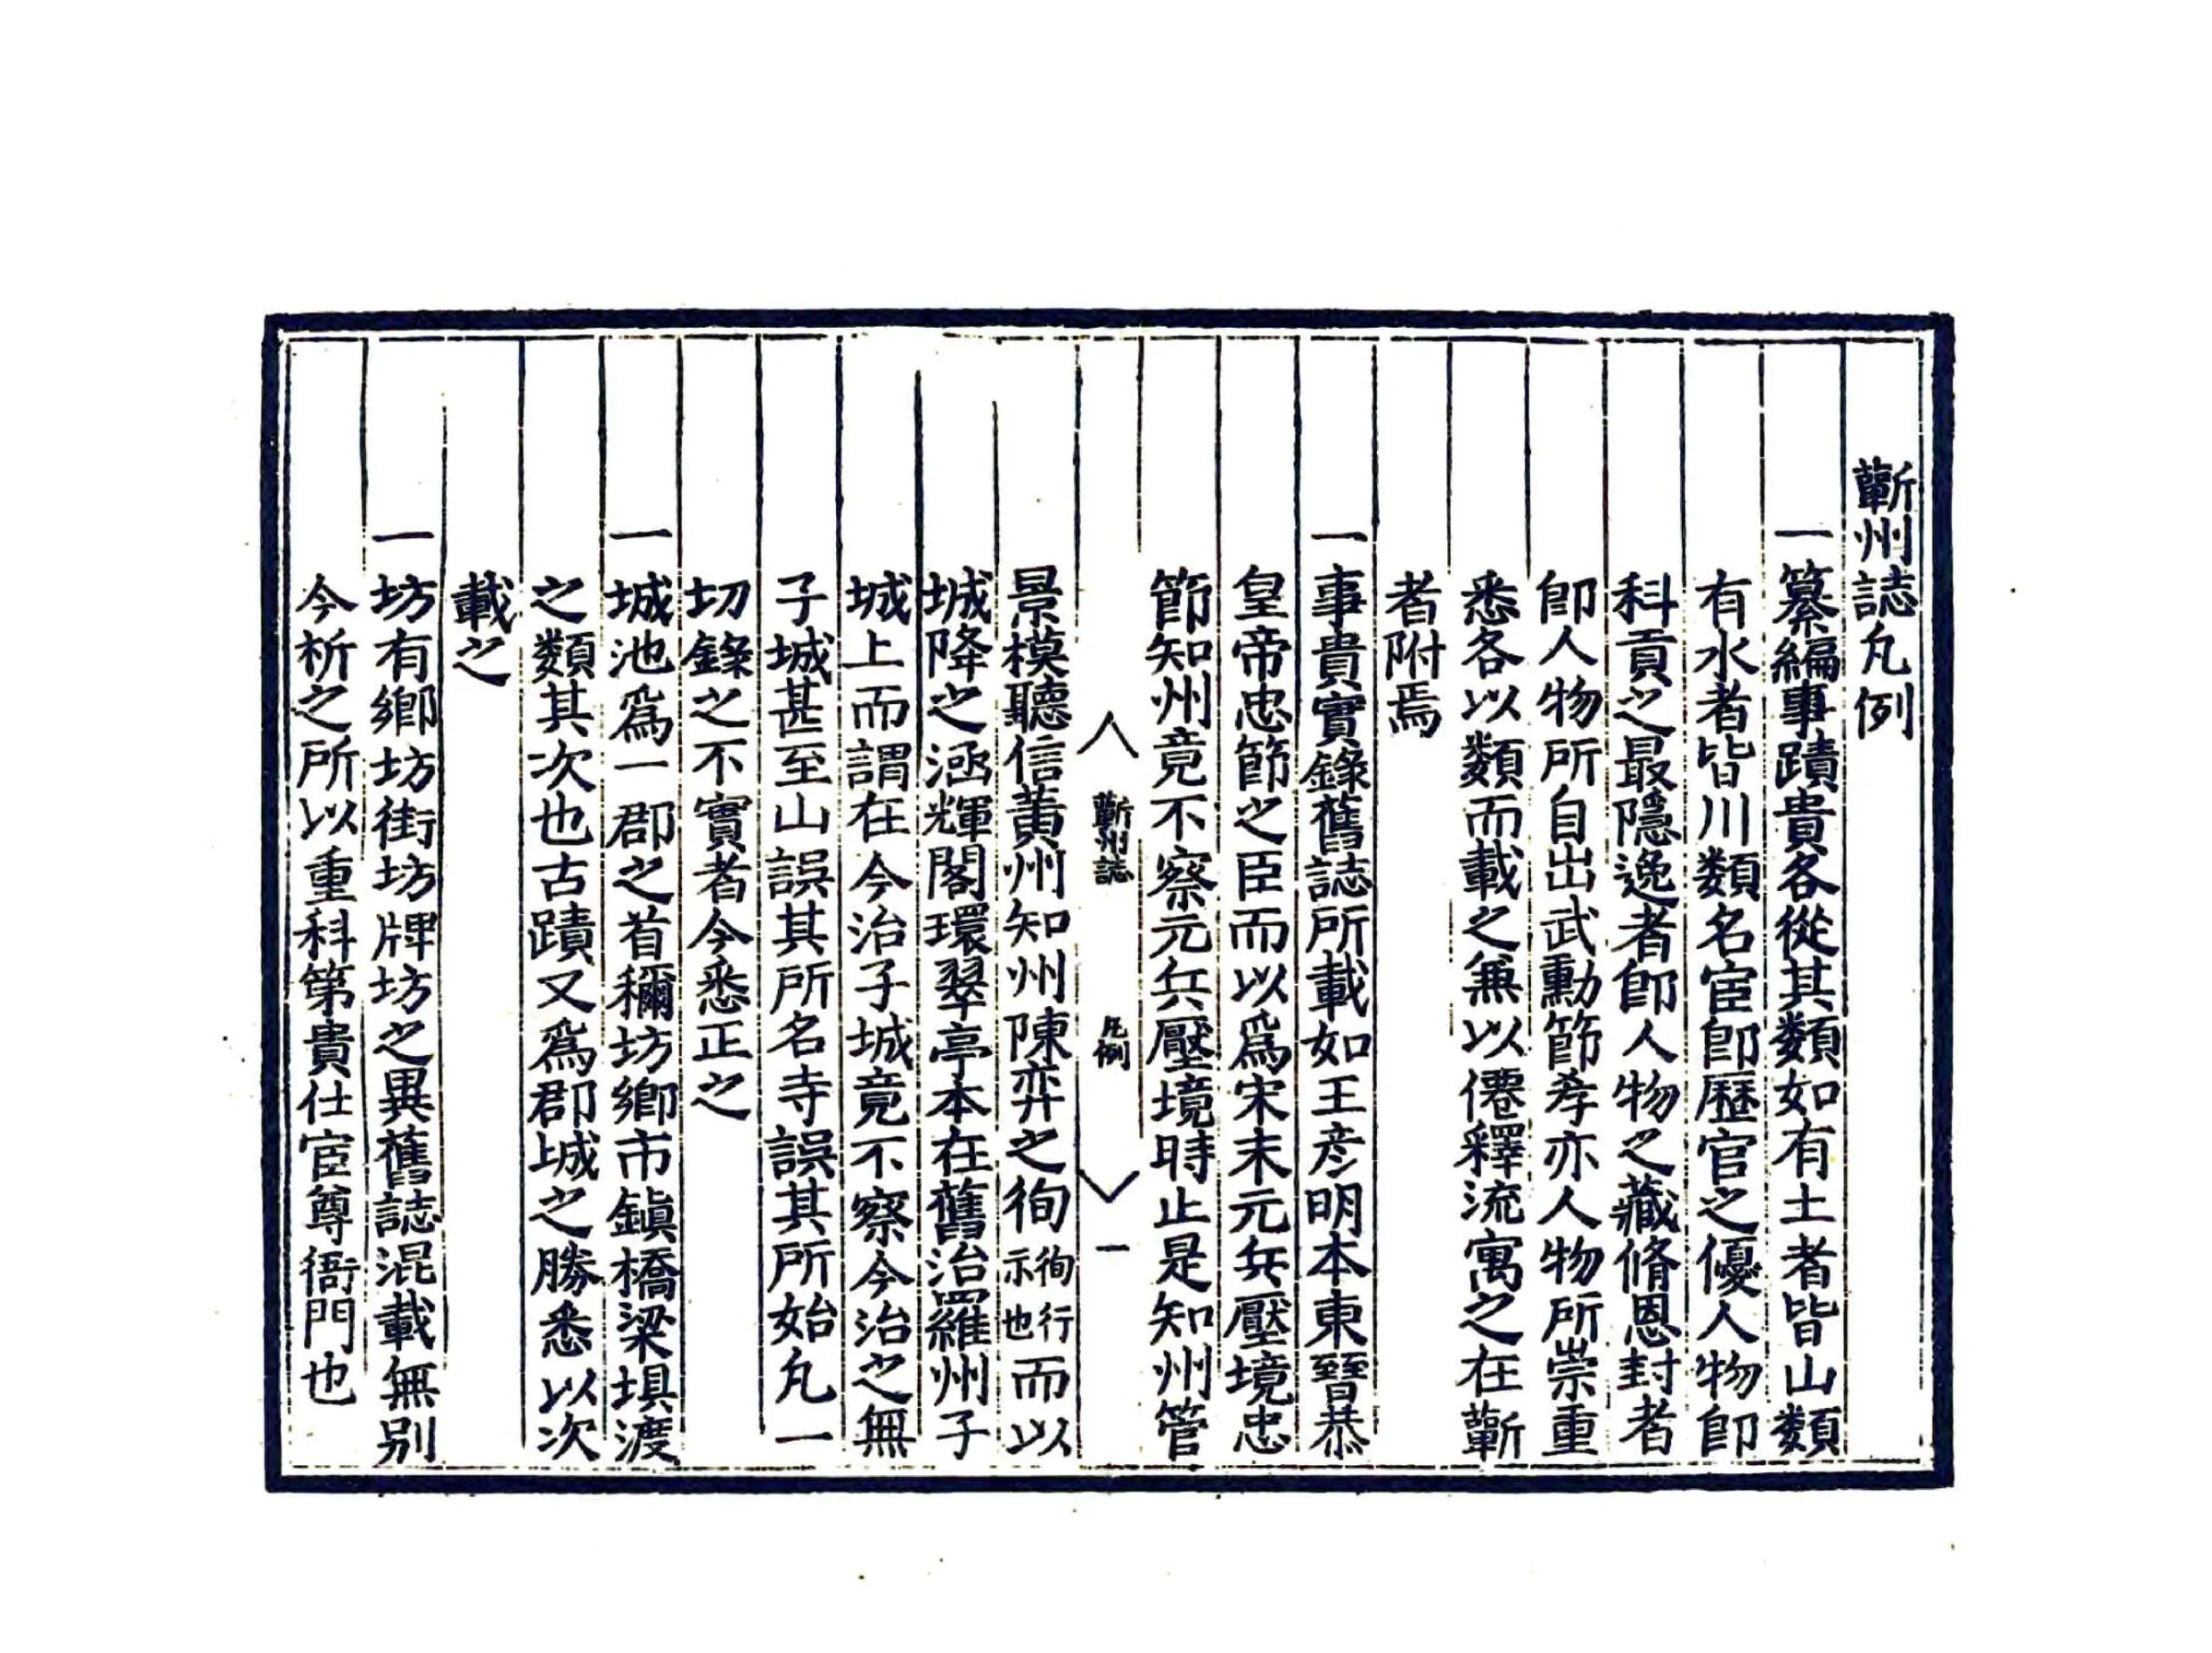 蘄州誌凡例
一纂編事蹟貴各從其類如有土者皆山類
有水者皆川類名宦卽歷官之優人物卽
科貢之最隱逸者卽人物之藏脩恩封者
卽人物所自出武勳節孝亦人物所崇重
悉各以類而載之無以僊釋流寓之在蘄
者附焉
一事貴實錄舊誌所載如王彥明本東晉恭
皇帝忠節之臣而以爲宋末元兵壓境忠
節知州竟不察元兵壓境時止是知州管
蘄州誌 凡例 一
景模聽信黃州知州陳弈之徇徇行示也而以
城降之涵輝閣環翠亭本在舊治羅州子
城上而謂在今治子城竟不察今治之無
子城甚至山誤其所名寺誤其所始凡一
切錄之不實者今悉正之
一城池爲一郡之首穪坊鄉市鎭橋梁埧渡
之類其次也古蹟又爲郡城之勝悉以次
載之
一坊有鄉坊街坊牌坊之異舊誌混載無別
今析之所以重科第貴仕宦尊衙門也